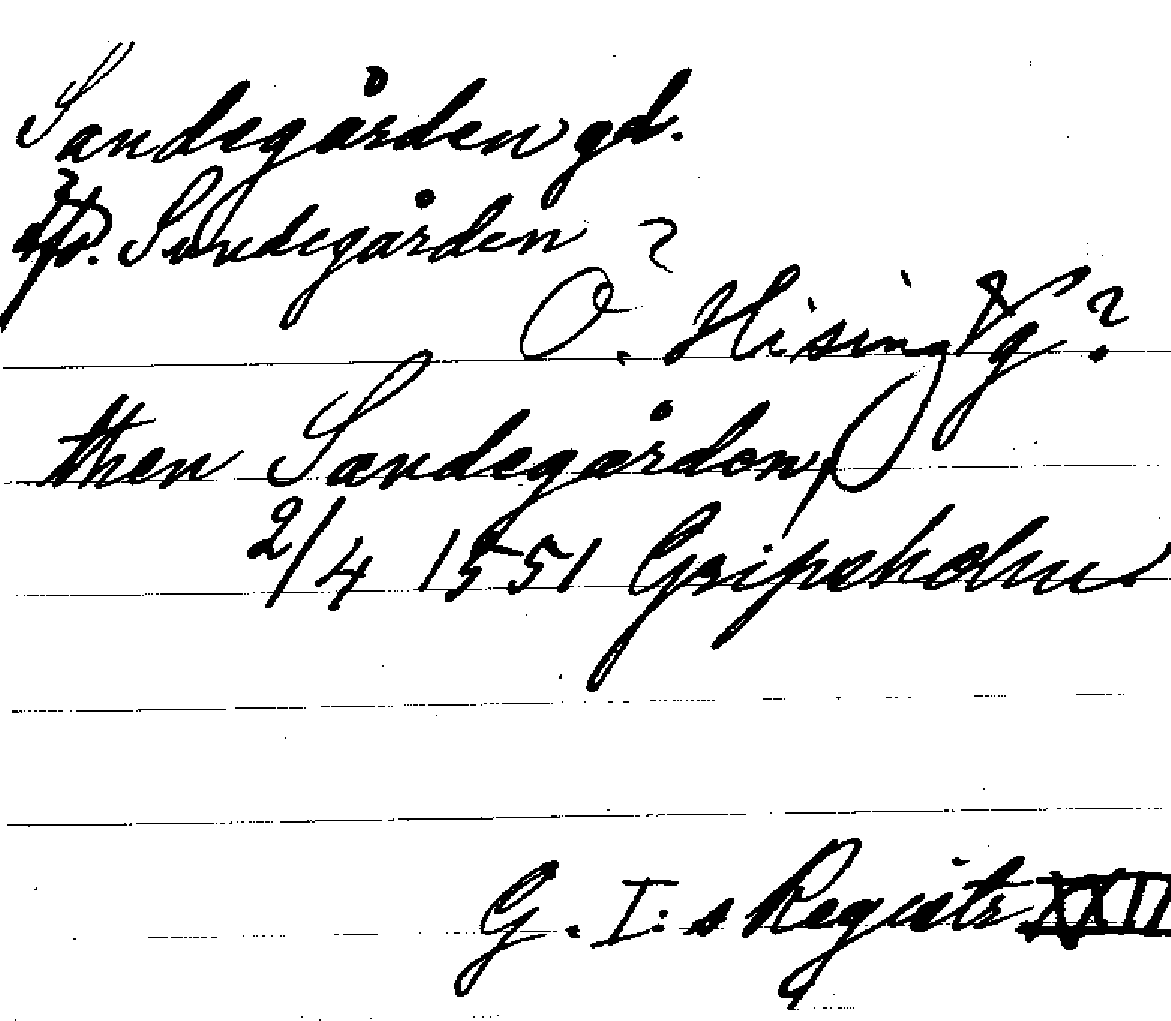 Sandegården gd.
Sundegården ?
O. Hising Vg ?
then Sandegården,
2/4 1551 Gripsholm
G. I:s Registr. XXII